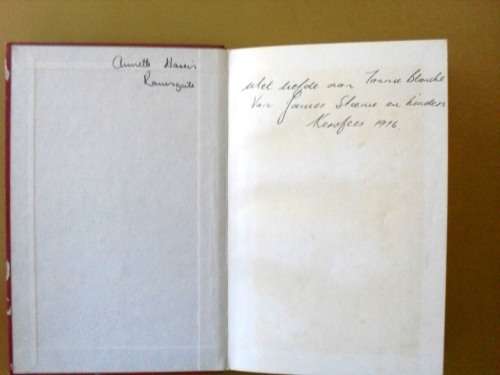 Annette
Ramsgate
Met liefde aan Tannie Blanche
Van James Steenie en kinders
Kersfees 1976